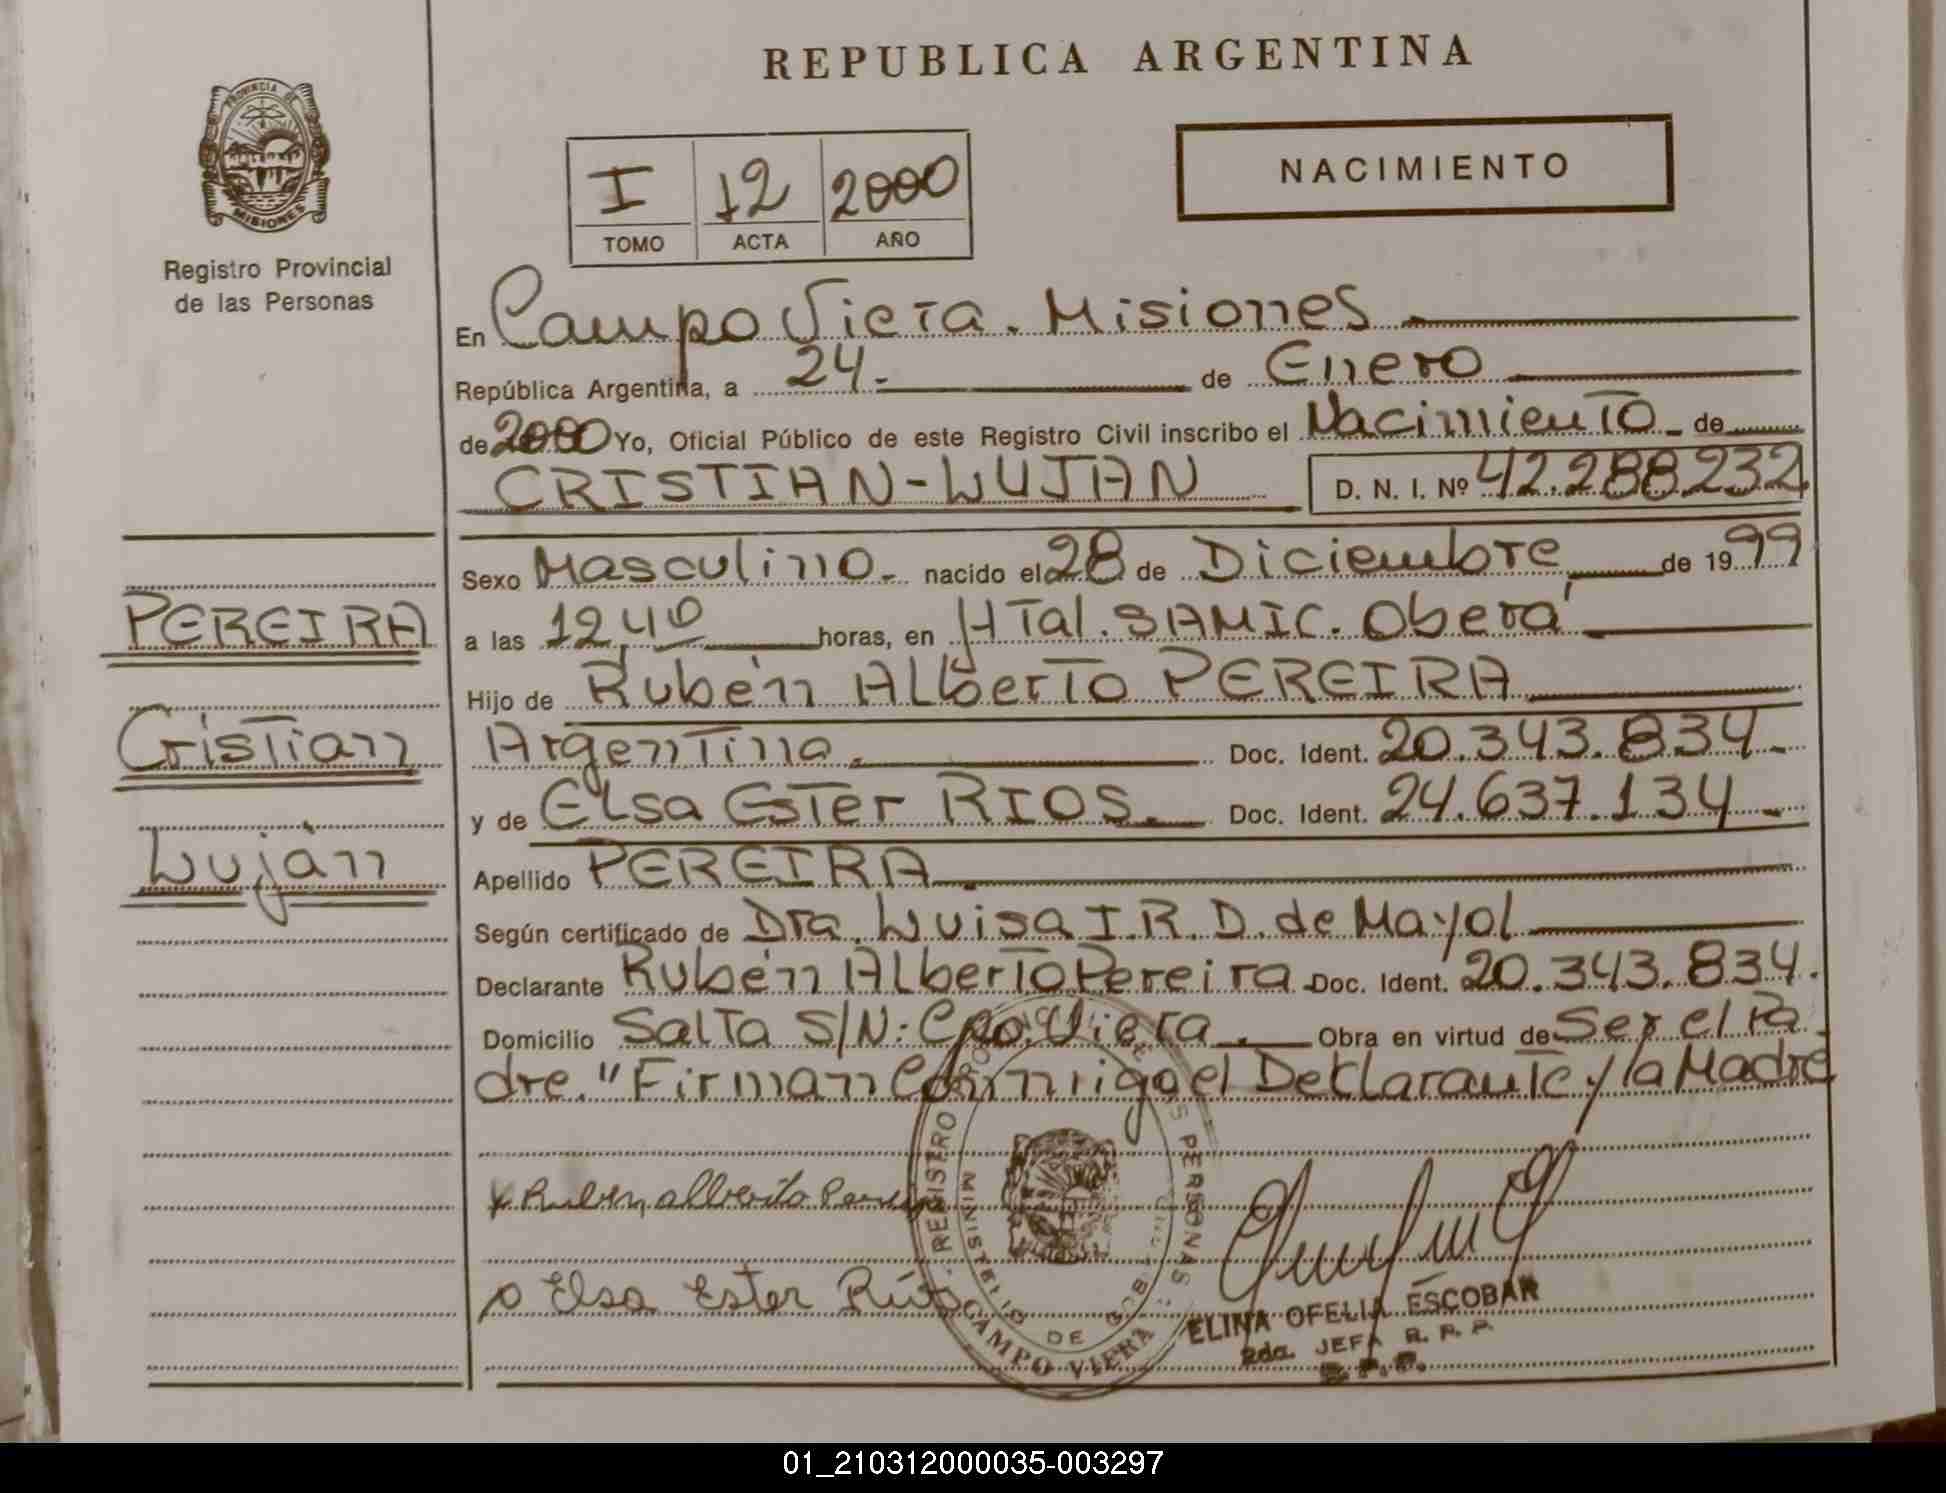 REPUBLICA ARGENTINA
PROVINCIA DE
MISIONES
Registro Provincial
de las Personas
I 12 2000
TOMO ACTA AÑO
NACIMIENTO
En Campo Viera. Misiones
República Argentina, a 24. de Enero
de 2000 Yo, Oficial Público de este Registro Civil inscribo el Nacimiento de
CRISTIAN-LUJAN D. N. I. Nº 42.288.232
Sexo Masculino. nacido el 28 de Diciembre de 1999
a las 12,40 horas, en HTal. SAMIC. Oberá
Hijo de Rubén Alberto PEREIRA
Argentina. Doc. Ident. 20.343.834
y de Elsa Ester RIOS. Doc. Ident. 24.637.134
Apellido PEREIRA
Según certificado de Dra. Luisa I.R.D. de Mayol
Declarante Rubén Alberto Pereira Doc. Ident. 20.343.834.
Domicilio Salta S/N: Cpo. Viera. Obra en virtud de Ser el Pa
dre. "Firman Conmigo el Declarante y la Madre
PEREIRA
Cristian
Luján
x Ruben alberto Pereira
Elsa Ester Ríos
REGISTRO PROVINCIAL DE LAS PERSONAS
MINISTERIO DE GOBIERNO
CAMPO VIERA
ELINA OFELIA ESCOBAR
2da. JEFA R. P. P.
01_210312000035-003297